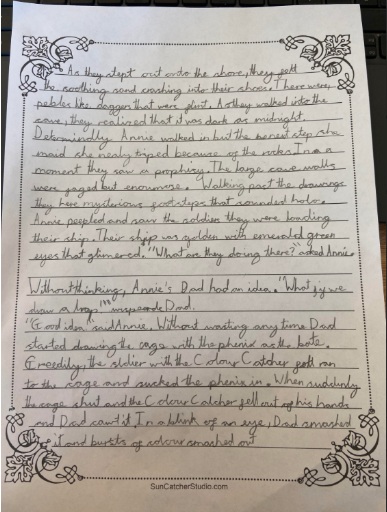 As they stept out onto the shore, they felt
the soothing sand crashing into their shoes. There were
pebles like daggers that were flint. As they walked into the
cave, they realized that it was dark as midnight.
Determindly Annie walked in but the next step she
maid she nearly triped because of the rocks. In a
moment they saw a prophecy. The large cave walls
were jaged but enourmose. Walking past the drawings
they here mysterious footsteps that sounded holo.
Annie peepled and saw the soldiers they were loading
their ship. Their ship was golden with emerald green
eyes that glimered. "What are they doing there?" asked Annie.
Without thinking, Annie's Dad had an idea. "What if we
draw a trap," Dad.
"Good idea" said Annie. Without wasting any time Dad
started drawing the cage with the phenix as the bate.
Greedily, the sldier with the Colour Catcher ran
to the cage and sucked the phenix in. When suddunly
the cage shut and the Colour Catcher fell out of his hands
and Dad cawt it. In a blink of an eye, Dad smashed
it and bursts of colour smashed out
SunCatcherStudio.com